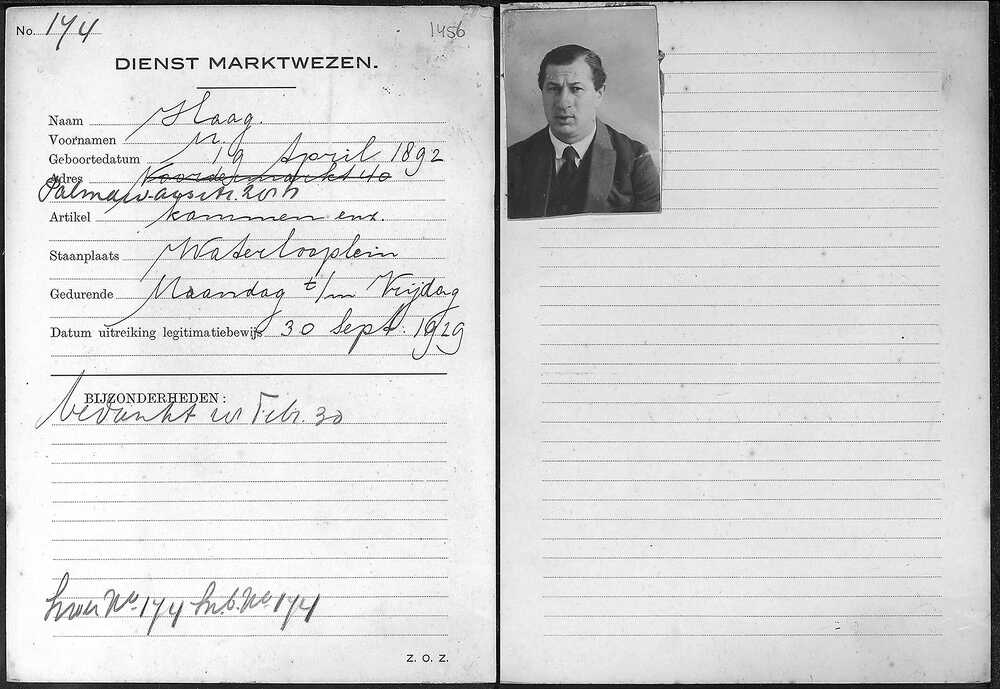 No. 174
1456
DIENST MARKTWEZEN.
Naam Haag.
Voornamen M.
Geboortedatum 19 April 1892
Adres Noordermarkt 40
Artikel kammen enz.
Staanplaats Waterlooplein
Gedurende Maandag t/m Vrijdag
Datum uitreiking legitimatiebewijs 30 Sept. 1929
BIJZONDERHEDEN:
bedankt Febr. 30
No. 174 No. 174
Z. O. Z.